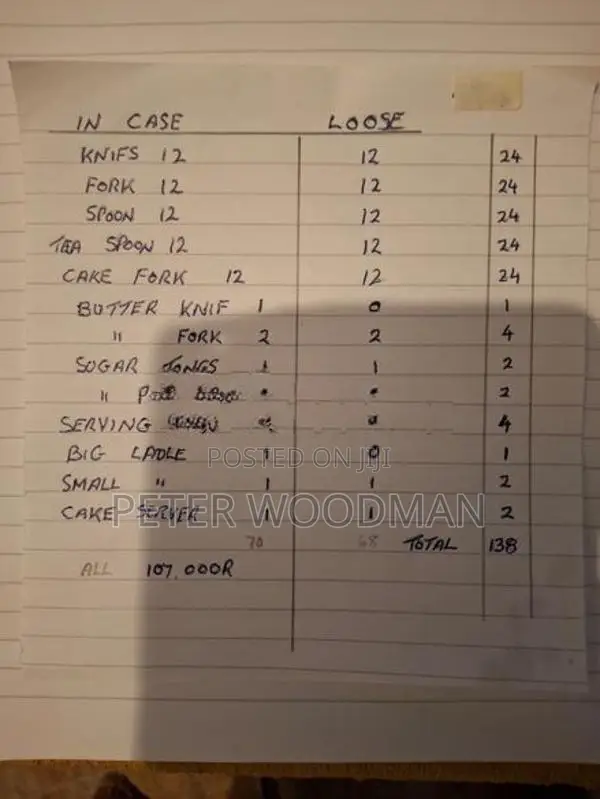 IN CASE LOOSE
KNIFS 12 12 24
FORK 12 12 24
SPOON 12 12 24
TEA SPOON 12 12 24
CAKE FORK 12 12 24
BUTTER KNIF 1 0 1
" FORK 2 2 4
SUGAR TONGS 1 1 2
" 2
SERVING 4
BIG LADLE 1 0 1
POSTED ON JIJI
SMALL " 1 1 2
PETER WOODMAN
CAKE SERVER 1 1 2
70 68 TOTAL 138
ALL 107.000R